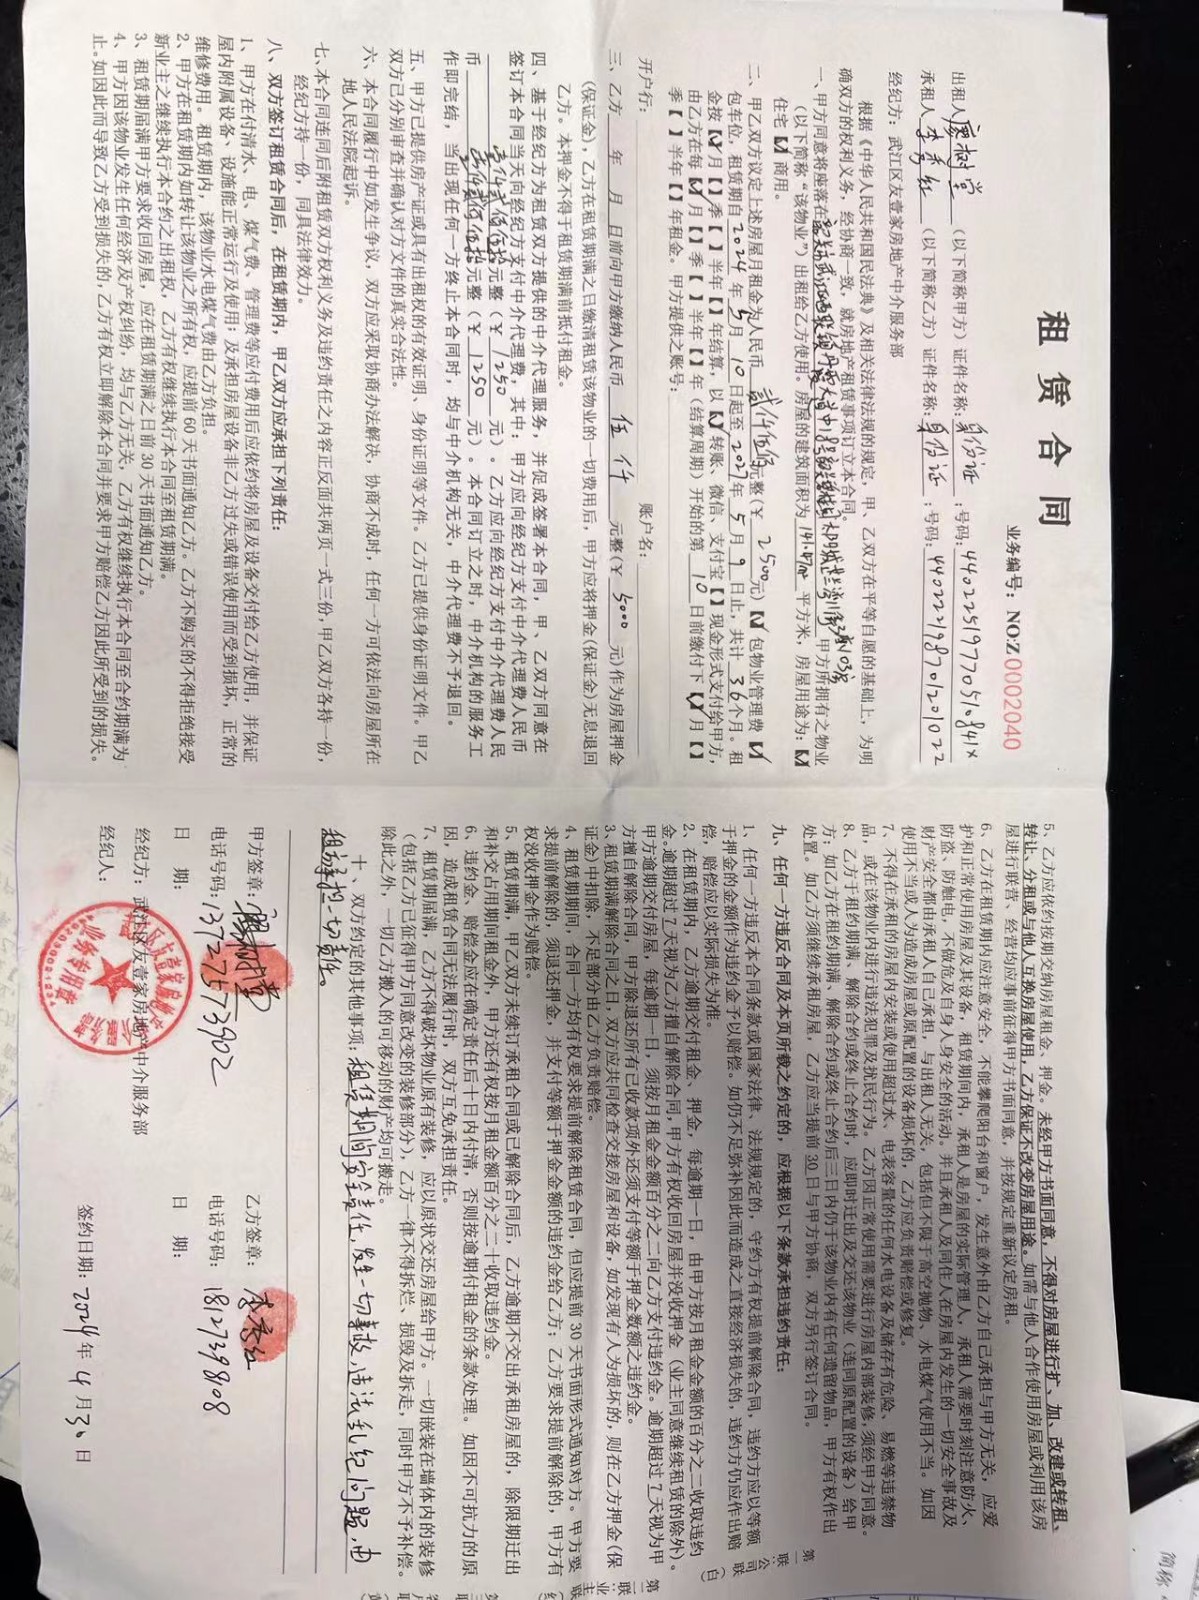 租 赁 合 同
业务编号：NO:Z0002040
出租人：廖树堂（以下简称甲方）证件名称：身份证：号码：44022519770510841X
承租人：李秀红（以下简称乙方）证件名称：身份证：号码：440221198701201022
经纪方：武江区友壹家房地产中介服务部
根据《中华人民共和国民法典》及相关法律法规的规定，甲、乙双方在平等自愿的基础上，为明
确双方的权利义务，经协商一致，就房地产租赁事项订立本合同。
一、甲方同意将座落在 甲方所拥有之物业
（以下简称“该物业”）出租给乙方使用。房屋的建筑面积为 平方米，房屋用途为：【√】
住宅【】商用。
二、甲乙双方议定上述房屋月租金为人民币 贰仟伍佰 元整（￥ 2500 元）【√】包物业管理费【√】
包车位，租赁期自 2024 年 5 月 10 日起至 2027 年 5 月 9 日止，共计 36 个月。租
金按【√】月【】季【】半年【】年结算，以【√】转账、微信、支付宝【】现金形式支付给甲方，
由乙方在每【√】月【】季【】半年【】年（结算周期）开始的第 10 日前缴付下【√】月【】
季【】半年【】年租金。甲方提供之账号：
开户行： 账户名：
三、乙方 年 月 日前向甲方缴纳人民币 伍仟 元整（￥ 5000 元）作为房屋押金
（保证金），乙方在租赁期满之日缴清租赁该物业的一切费用后，甲方应将押金（保证金）无息退回
乙方。本押金不得于租赁期满前抵付租金。
四、基于经纪方为租赁双方提供的中介代理服务，并促成签署本合同，甲、乙双方同意在
签订本合同当天向经纪方支付中介代理费，其中：甲方应向经纪方支付中介代理费人民币
壹仟贰佰伍拾元整（￥ 1250 元）。乙方应向经纪方支付中介代理费人民
币 壹仟贰佰伍拾元整（￥ 1250 元）。本合同订立之时，中介机构的服务工
作即完结，当出现任何一方终止本合同时，均与中介机构无关，中介代理费不予退回。
五、甲方已提供房产证或具有出租权的有效证明、身份证明等文件。乙方已提供身份证明文件。甲乙
双方已分别审查并确认对方文件的真实合法性。
六、本合同履行中如发生争议，双方应采取协商办法解决，协商不成时，任何一方可依法向房屋所在
地人民法院起诉。
七、本合同连同后附租赁双方权利义务及违约责任之内容正反面共两页一式三份，甲乙双方各持一份，
经纪方持一份，同具法律效力。
八、双方签订租赁合同后，在租赁期内，甲乙双方应承担下列责任：
1、甲方在付清水、电、煤气费、管理费等应付费用后应依约将房屋及设备交付给乙方使用，并保证
屋内附属设备、设施能正常运行及使用；及承担房屋设备非乙方过失或错误使用而受到损坏，正常的
维修费用。租赁期内，该物业水电煤气费由乙方负担。
2、甲方在租赁期内如转让该物业之所有权，应提前 60 天书面通知乙方。乙方不购买的不得拒绝接受
新业主之继续执行本合约之出租权，乙方有权继续执行本合同至租赁期满。
3、租赁期届满甲方要求收回房屋，应在租赁期满之日前 30 天书面通知乙方。
4、甲方因该物业发生任何经济及产权纠纷，均与乙方无关，乙方有权继续执行本合同至合约期满为
止。如因此而导致乙方受到损失的，乙方有权立即解除本合同并要求甲方赔偿乙方因此所受到的损失。
5、乙方应依约按期交纳房屋租金、押金。未经甲方书面同意，不得对房屋进行扩、加、改建或转租、
转让、分租或与他人互换房屋使用，乙方保证不改变房屋用途。如需与他人合作使用房屋或利用该房
屋进行联营、经营均应事前征得甲方书面同意，并按规定重新议定房租。
6、乙方在租赁期内应注意安全，不能攀爬阳台和窗户，发生意外由乙方自己承担与甲方无关，应爱
护和正常使用房屋及其设备，租赁期间内，承租人是房屋的实际管理人，承租人需要时刻注意防火、
防盗、防触电，不做危及自身人身安全的活动。并且承租人及同住人在房屋内发生的一切安全事故及
财产安全都由承租人自己承担，与出租人无关，包括但不限于高空抛物、水电煤气使用不当。如因
使用不当或人为造成房屋或原配置的设备损坏的，乙方应负责赔偿或修复。
7、不得在承租的房屋内安装或使用超过水、电表容量的任何水电设备及储存有危险、易燃等违禁物
品，或在该物业内进行违法犯罪及扰民行为。乙方因正常使用需要进行房屋内部装修，须经甲方同意。
8、乙方于租约期满、解除合约或终止合约时，应即时迁出及交还该物业（连同原配置的设备）给甲
方；如乙方在租约期满、解除合约或终止合约后三日内仍于该物业内有任何遗留物品，甲方有权作出
处置。如乙方须继续承租房屋，乙方应当提前30日与甲方协商，双方另行签订合同。
九、任何一方违反合同及本页所载之约定的，应根据以下条款承担违约责任：
1、任何一方违反本合同条款或国家法律、法规规定的，守约方有权提前解除合同，违约方应以等额
于押金的金额作为违约金予以赔偿。如仍不足弥补因此而造成之直接经济损失的，违约方仍应作出赔
偿，赔偿应以实际损失为准。
2、在租赁期内，乙方逾期交付租金、押金，每逾期一日，由甲方按月租金金额的百分之二收取违约
金。逾期超过7天视为乙方擅自解除合同，甲方有权收回房屋并没收押金（业主同意继续租赁的除外）。
甲方逾期交付房屋，每逾期一日，须按月租金金额百分之二向乙方支付违约金。逾期超过7天视为甲
方擅自解除合同，甲方除退还所有已收款项外还须支付等额于押金数额之违约金。
3、租赁期满解除合同之日，双方应共同检查交接房屋和设备，如发现有人为损坏的，则在乙方押金（保
证金）中扣除，不足部分由乙方负责赔偿。
4、租赁期期间，合同一方均有权要求提前解除租赁合同，但应提前30天书面形式通知对方。甲方要
求提前解除的，须退还押金，并支付等额于押金金额的违约金给乙方；乙方要求提前解除的，甲方有
权没收押金作为赔偿。
5、租赁期满，甲乙双方未续订承租合同或已解除合同后，乙方逾期不交出承租房屋的，除限期迁出
和补交占用期间租金外，甲方还有权按月租金额百分之二十收取违约金。
6、违约金、赔偿金应在确定责任后十日内付清，否则按逾期付租金的条款处理。如因不可抗力的原
因，造成租赁合同无法履行时，双方互免承担责任。
7、租赁期届满，乙方不得破坏物业原有装修，应以原状交还房屋给甲方。一切嵌装在墙体内的装修
（包括乙方已征得甲方同意改变的装修部分），乙方一律不得拆烂、损毁及拆走，同时甲方不予补偿。
除此之外，一切乙方搬入的可移动的财产均可搬走。
十、双方约定的其他事项：租赁期间安全责任，发生一切事故，违法乱纪问题，由
租方承担一切责任。
甲方签章：廖树堂 乙方签章：李秀红
电话号码：13727573902 电话号码：18127398108
日 期： 日 期：
经纪方：武江区友壹家房地产中介服务部
经纪人： 签约日期：2024年4月30日
业务专用章
第一联
公司联
（白）
第二联
业
简称